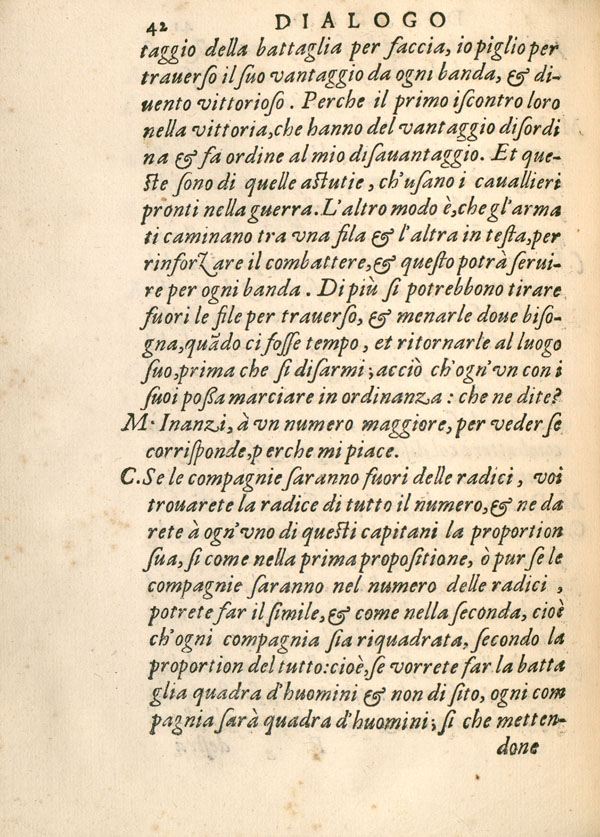 42 DIALOGO
taggio della battaglia per faccia, io piglio per
trauerſo il ſuo vantaggio da ogni banda, & di-
uento vittorioſo. Perche il primo iſcontro loro
nella vittoria, che hanno del vantaggio diſordi
na & fa ordine al mio diſauantaggio. Et que-
ſte ſono di quelle aſtutie, ch'uſano i cauallieri
pronti nella guerra. L'altro modo è, che gl'arma
ti caminano tra vna fila & l'altra in teſta, per
rinforzare il combattere, & queſto potrà ſerui-
re per ogni banda. Di più ſi potrebbono tirare
fuori le file per trauerſo, & menarle doue biſo-
gna, quãdo ci foſſe tempo, et ritornarle al luogo
ſuo, prima che ſi diſarmi; acciò ch'ogn'vn con i
ſuoi poßa marciare in ordinanza: che ne dite?
M. Inanzi, à vn numero maggiore, per veder ſe
corriſponde, perche mi piace.
C. Se le compagnie ſaranno fuori delle radici, voi
trouarete la radice di tutto il numero, & ne da
rete à ogn'vno di queſti capitani la proportion
ſua, ſi come nella prima propoſitione, ò pur ſe le
compagnie ſaranno nel numero delle radici,
potrete far il ſimile, & come nella ſeconda, cioè
ch'ogni compagnia ſia riquadrata, ſecondo la
proportion del tutto: cioè, ſe vorrete far la batta
glia quadra d'huomini & non di ſito, ogni com
pagnia ſarà quadra d'huomini; ſi che metten-
done